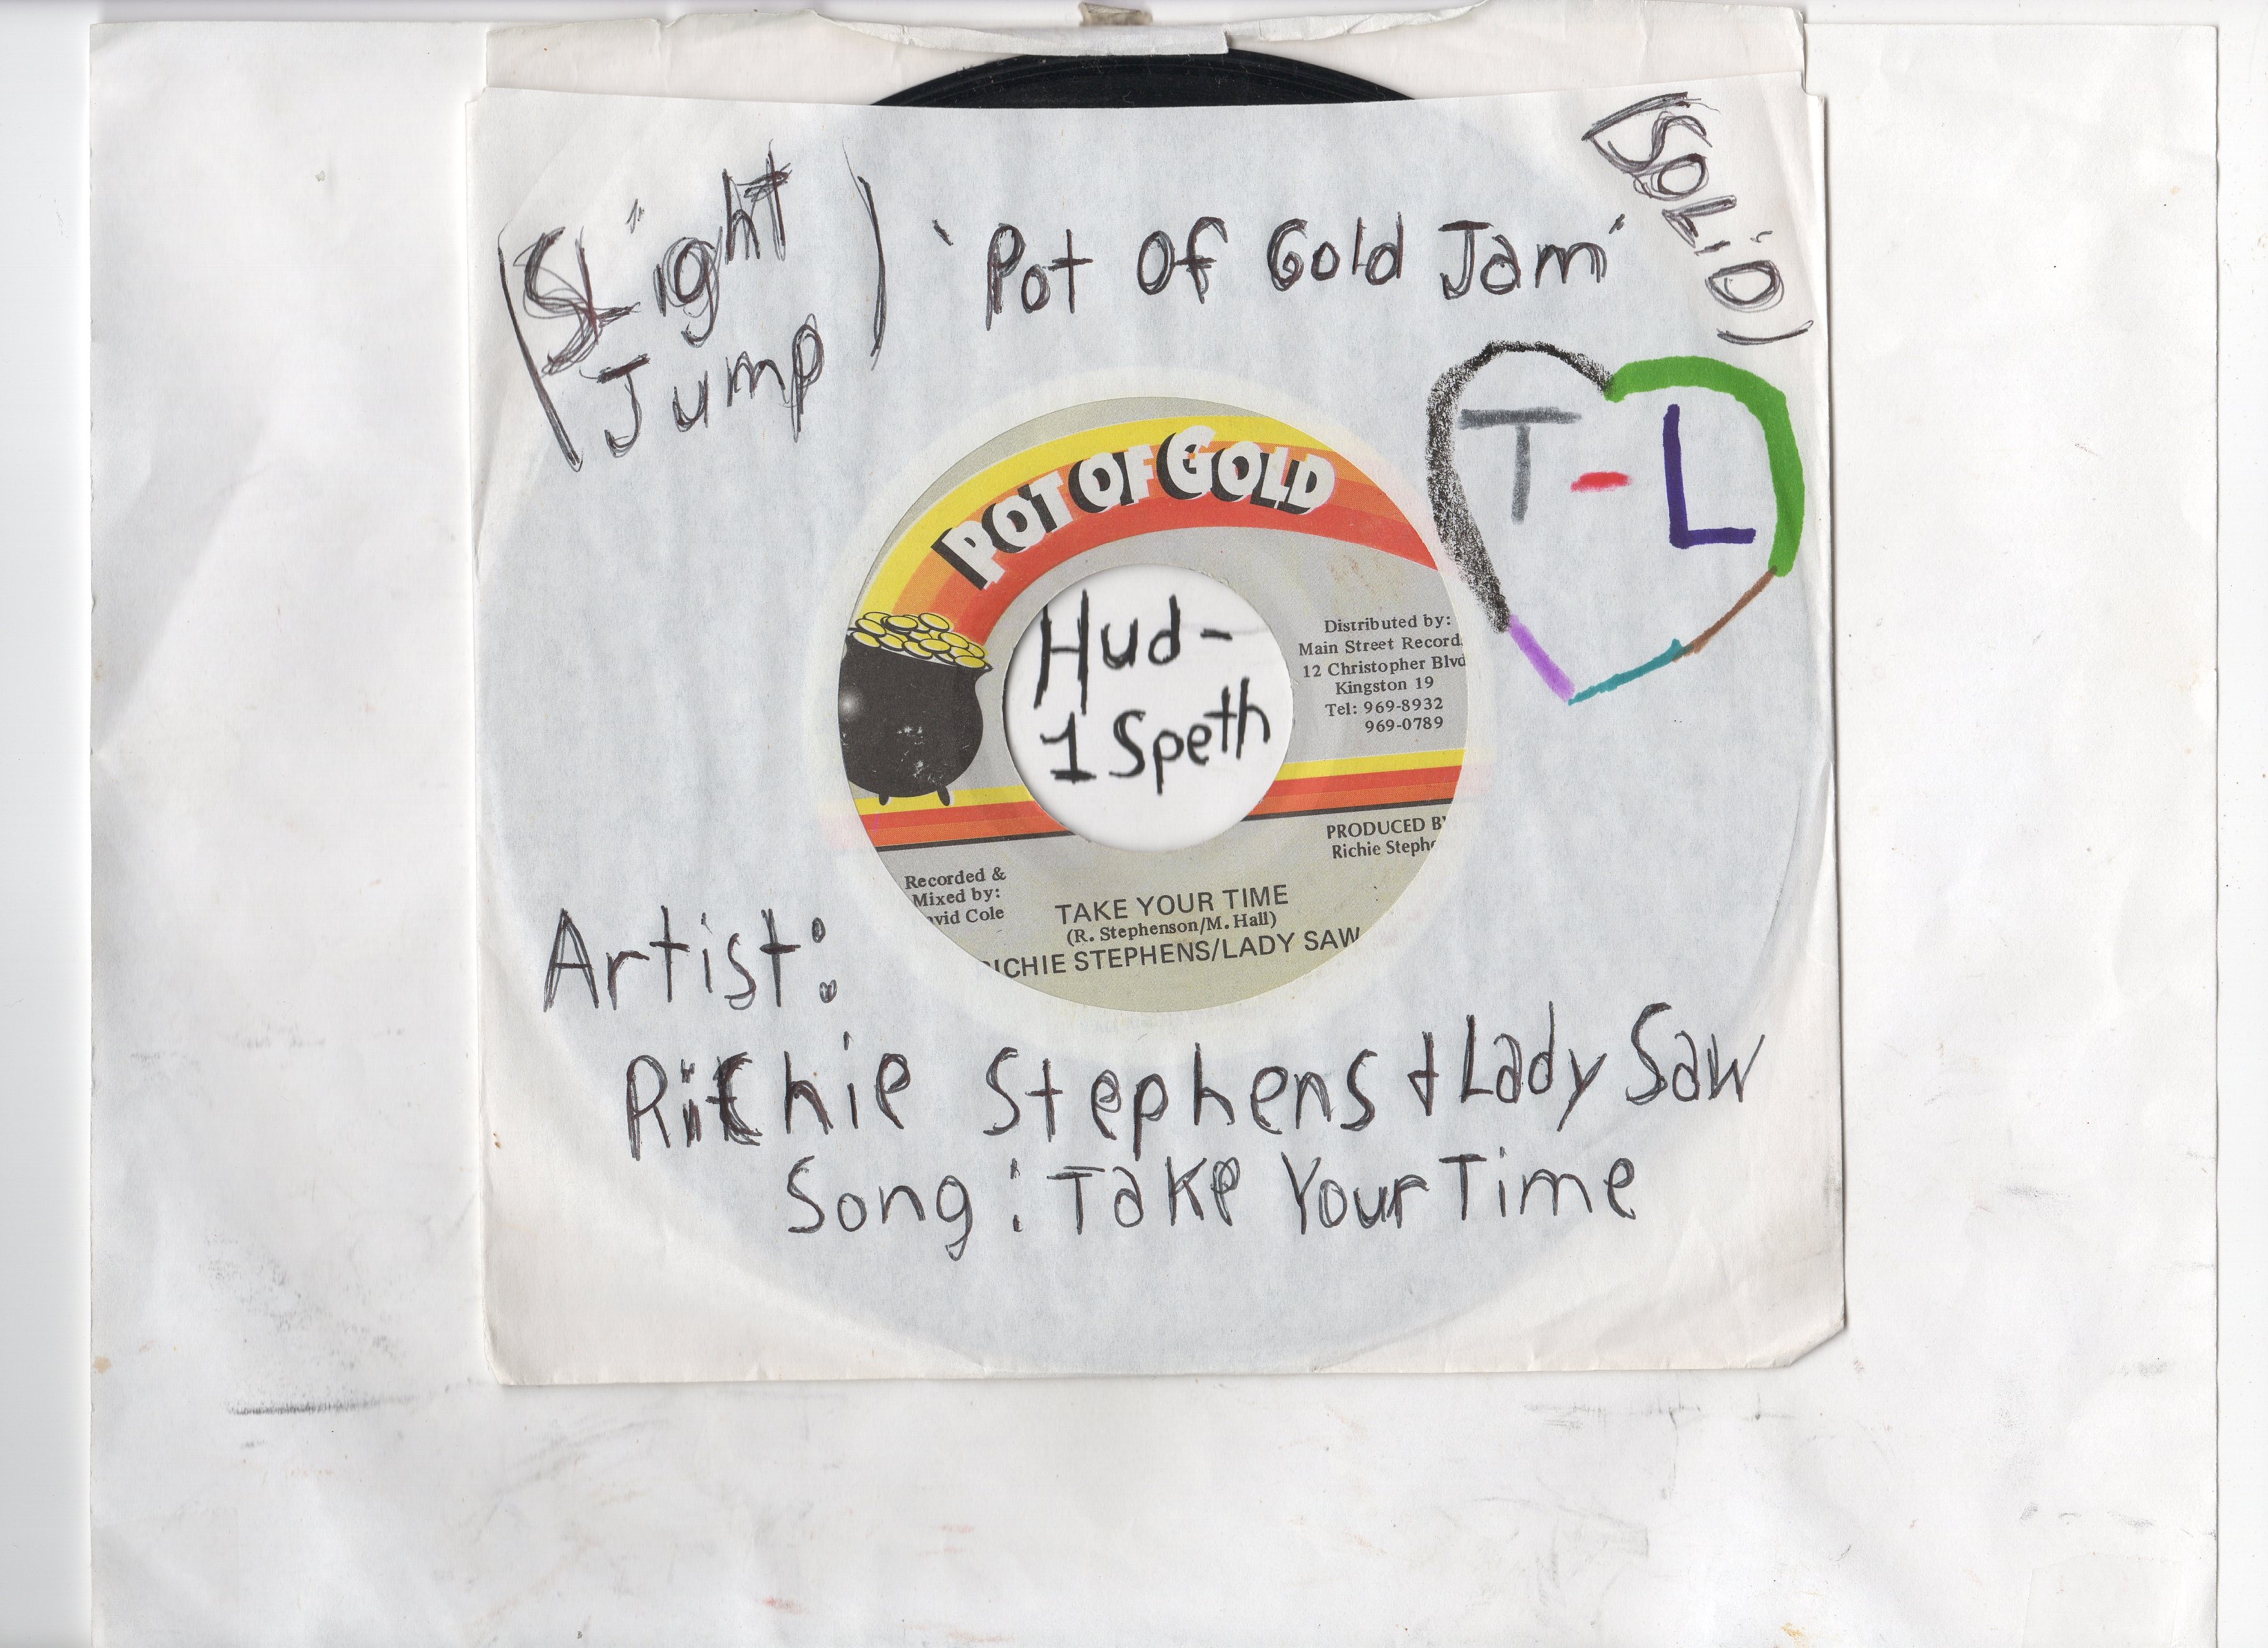 (SLight
Jump)
'Pot Of Gold Jam'
(SOLiD)
T-L
POT OF GOLD
Hud-
1 Speth
Distributed by:
Main Street Record
12 Christopher Blvd
Kingston 19
Tel: 969-8932
969-0789
PRODUCED BY
Richie Stephe
Recorded &
Mixed by:
avid Cole
TAKE YOUR TIME
(R. Stephenson/M. Hall)
RICHIE STEPHENS/LADY SAW
Artist:
Ritchie Stephens & Lady Saw
Song: Take Your Time